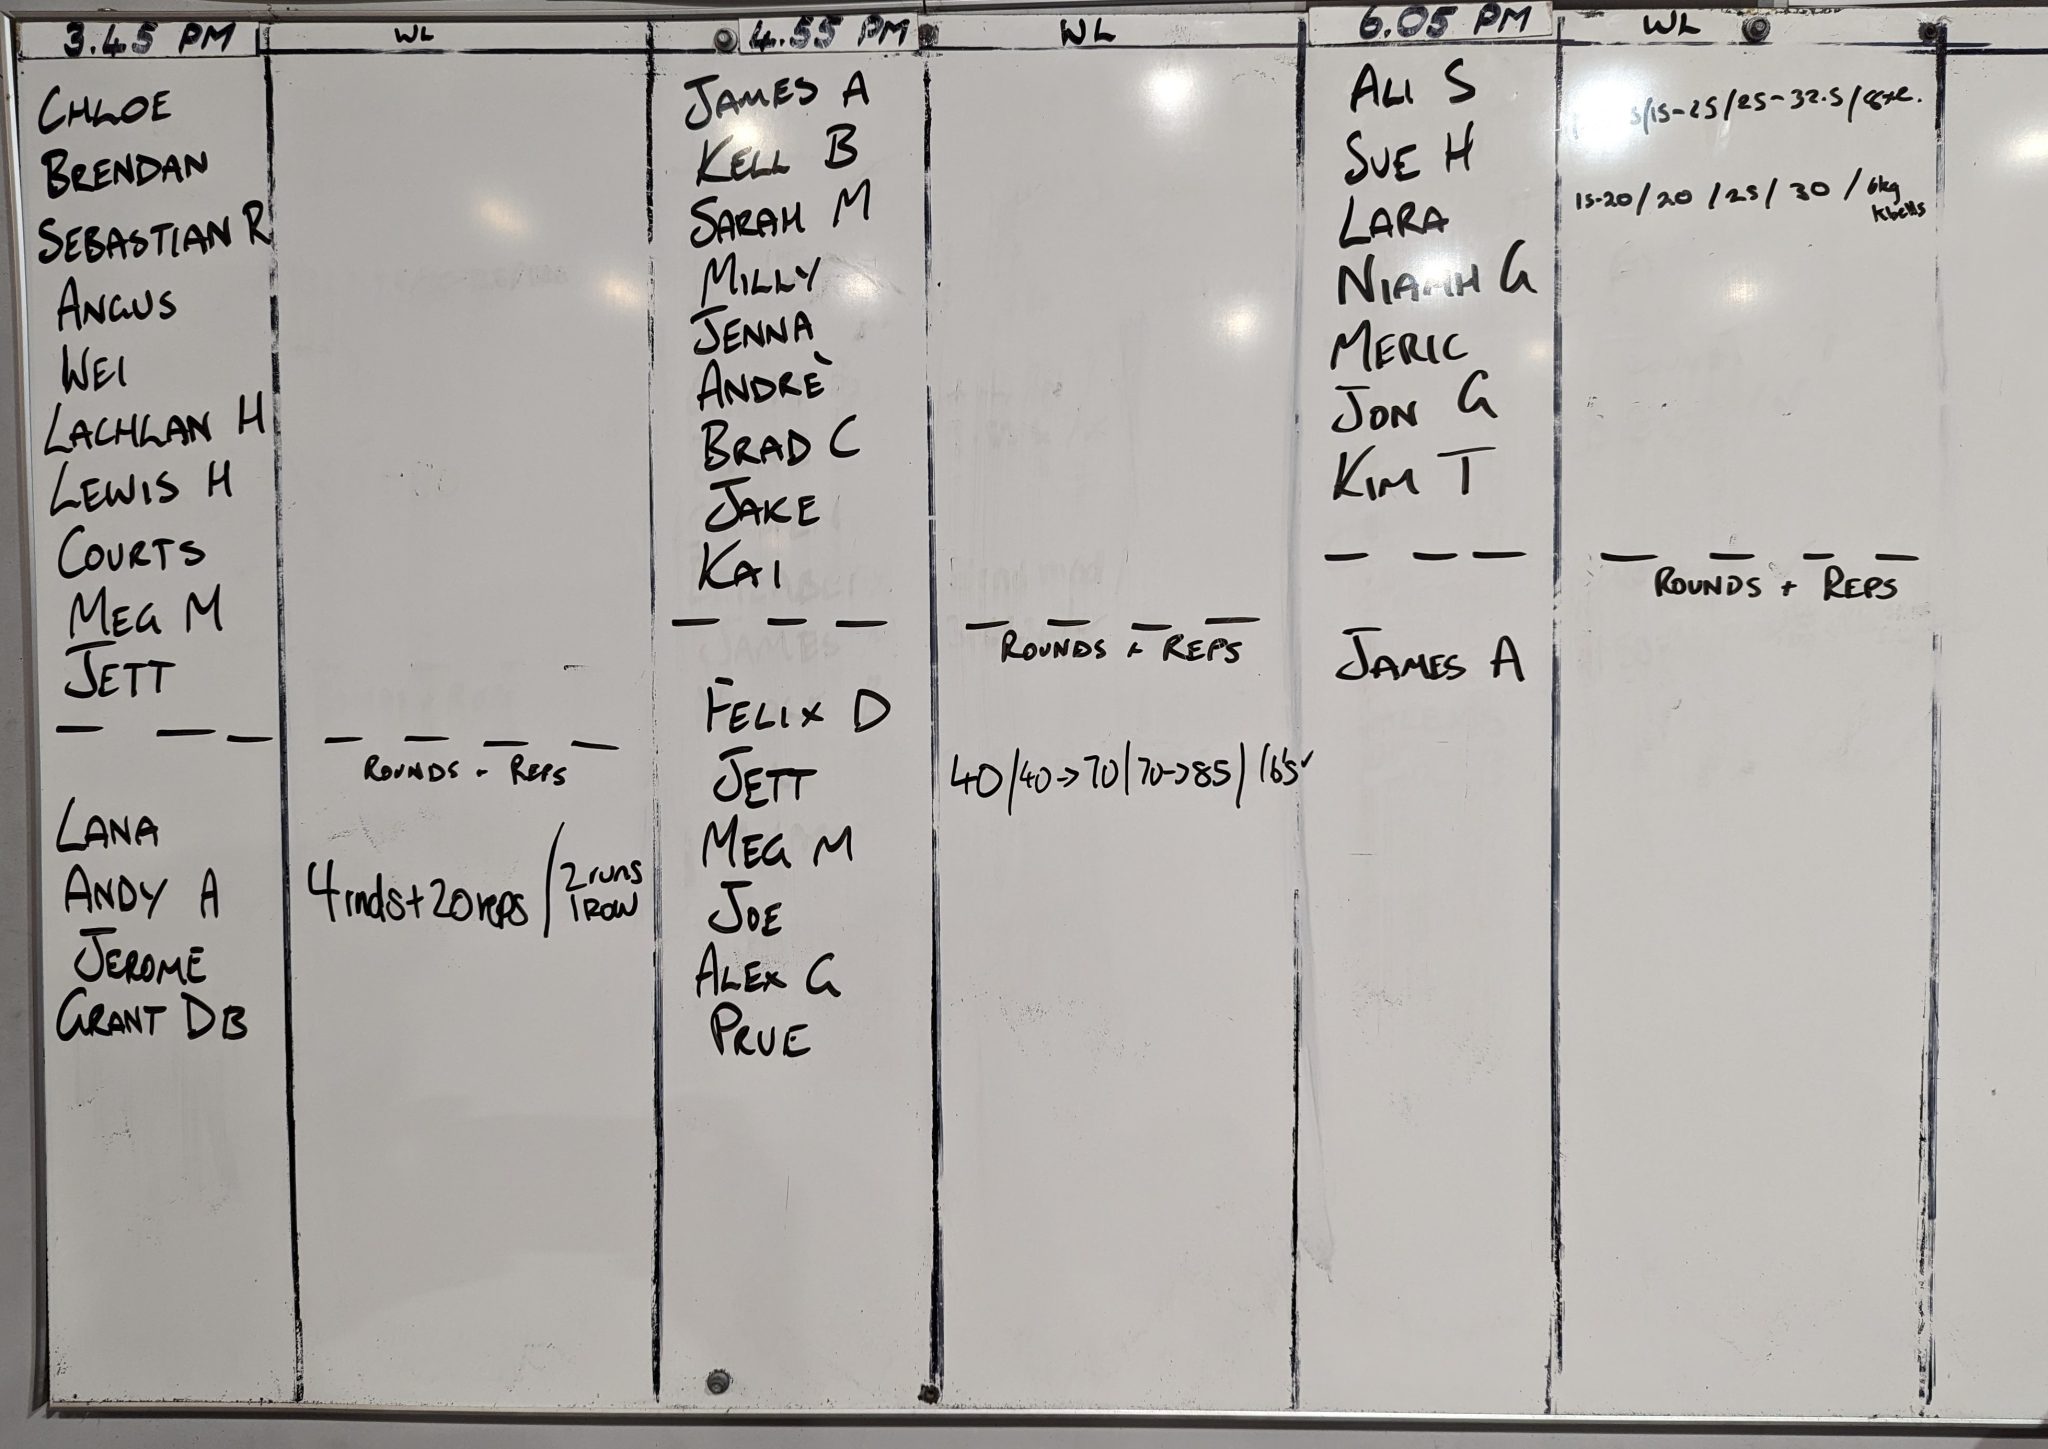 3.45 PM
WL
CHLOE
BRENDAN
SEBASTIAN R
ANGUS
WEI
LACHLAN H
LEWIS H
COURTS
MEG M
JETT
ROUNDS + REPS
LANA
ANDY A
4 rnds + 20 reps / 2 runs
1 ROW
JEROME
GRANT DB
4.55 PM
WL
JAMES A
KELL B
SARAH M
MILLY
JENNA
ANDRÈ
BRAD C
JAKE
KAI
ROUNDS + REPS
FELIX D
JETT
40/40->70/70->85/16's✓
MEG M
JOE
ALEX G
PRUE
6.05 PM
WL
ALI S
/15-25/25-32.5/
SUE H
LARA
15-20/20/25/30/6kg
Kbells
NIAMH G
MERIC
JON G
KIM T
ROUNDS + REPS
JAMES A